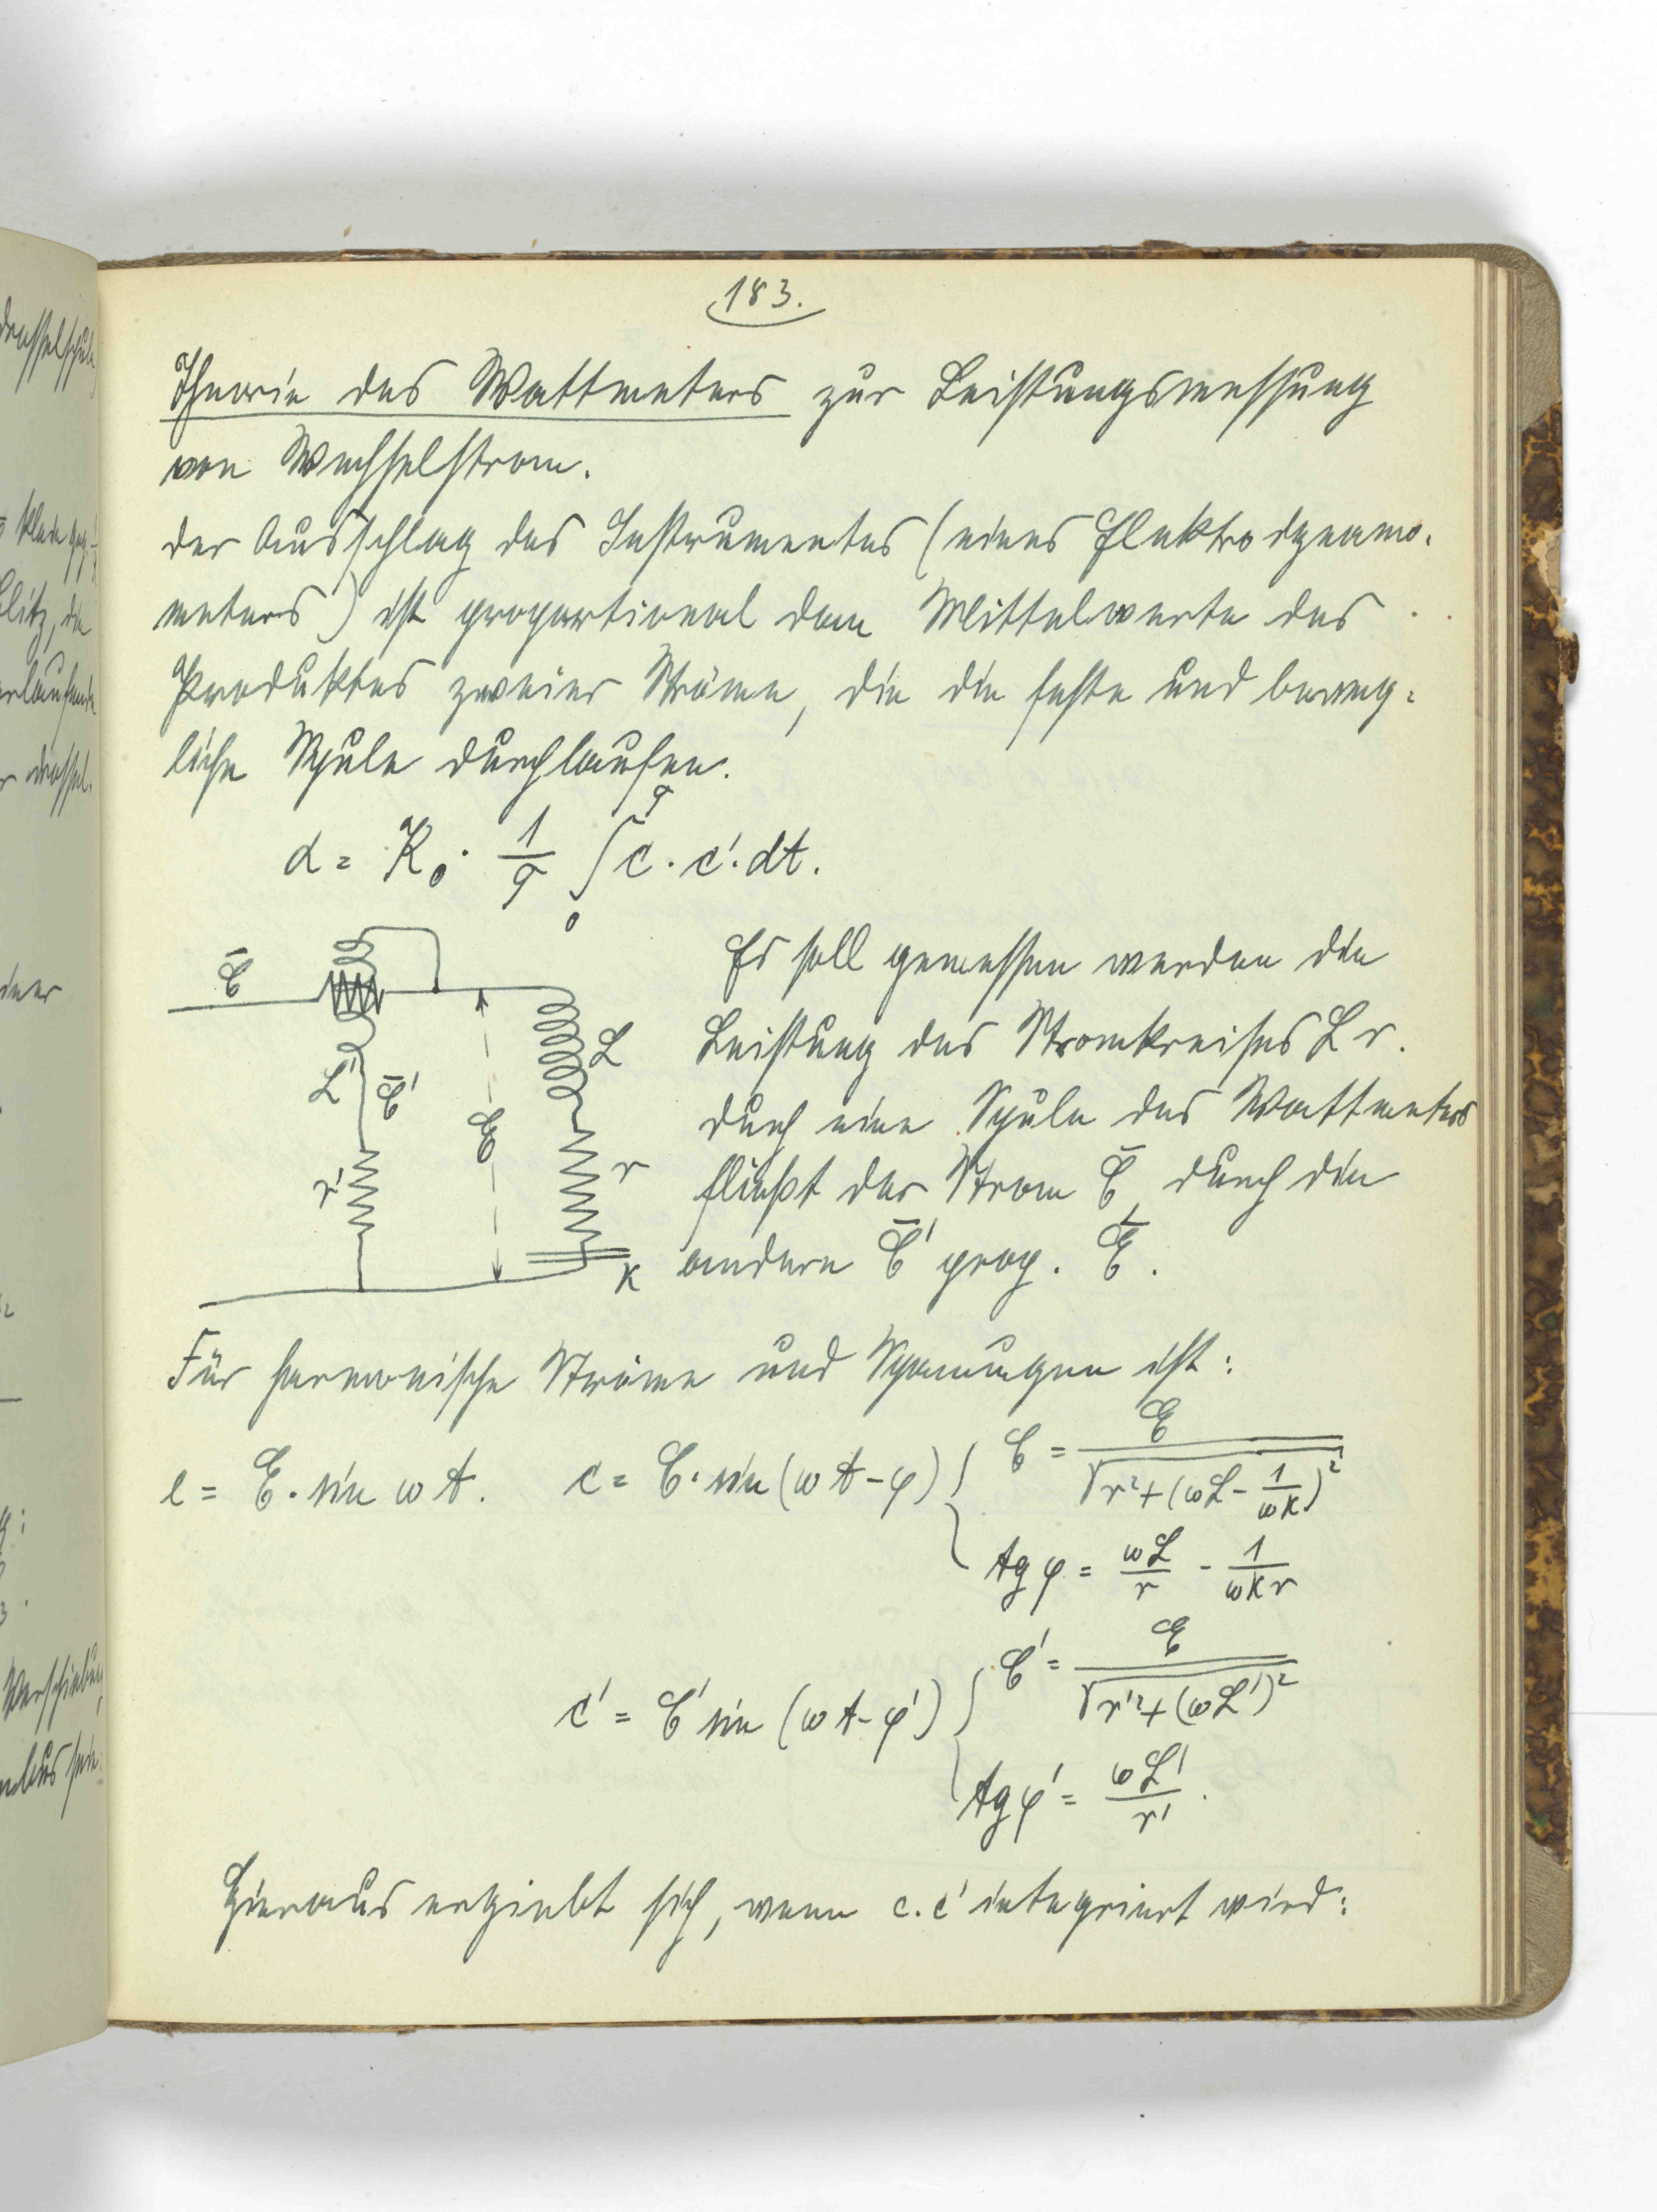 183.
Theorie des Wattmeters zur Leistungsmessung
von Wechselstrom.
Der Ausschlag des Instrumentes (eines Elektrodynamo-
meters) ist proportional dem Mittelwerte des
Produktes zweier Ströme, die die feste und beweg-
liche Spule durchlaufen.
α = K₀ · 1/T ∫₀ᵀ c · c' · dt.
C̄
L'
C̄'
r'
E
L
r
K
Es soll gemessen werden die
Leistung des Stromkreises L r.
Durch eine Spule des Wattmeters
fließt der Strom C̄, durch die
andere C̄' prop. Ē.
Für harmonische Ströme und Spannungen ist:
e = E · sin ω t. c = C · sin (ω t - φ) { C = E / √(r² + (ωL - 1/ωK)²)
tg φ = ωL/r - 1/ωKr
c' = C' sin (ω t - φ') { C' = E / √(r'² + (ωL')²)
tg φ' = ωL'/r'.
Hieraus ergiebt sich, wenn c . c' integriert wird: